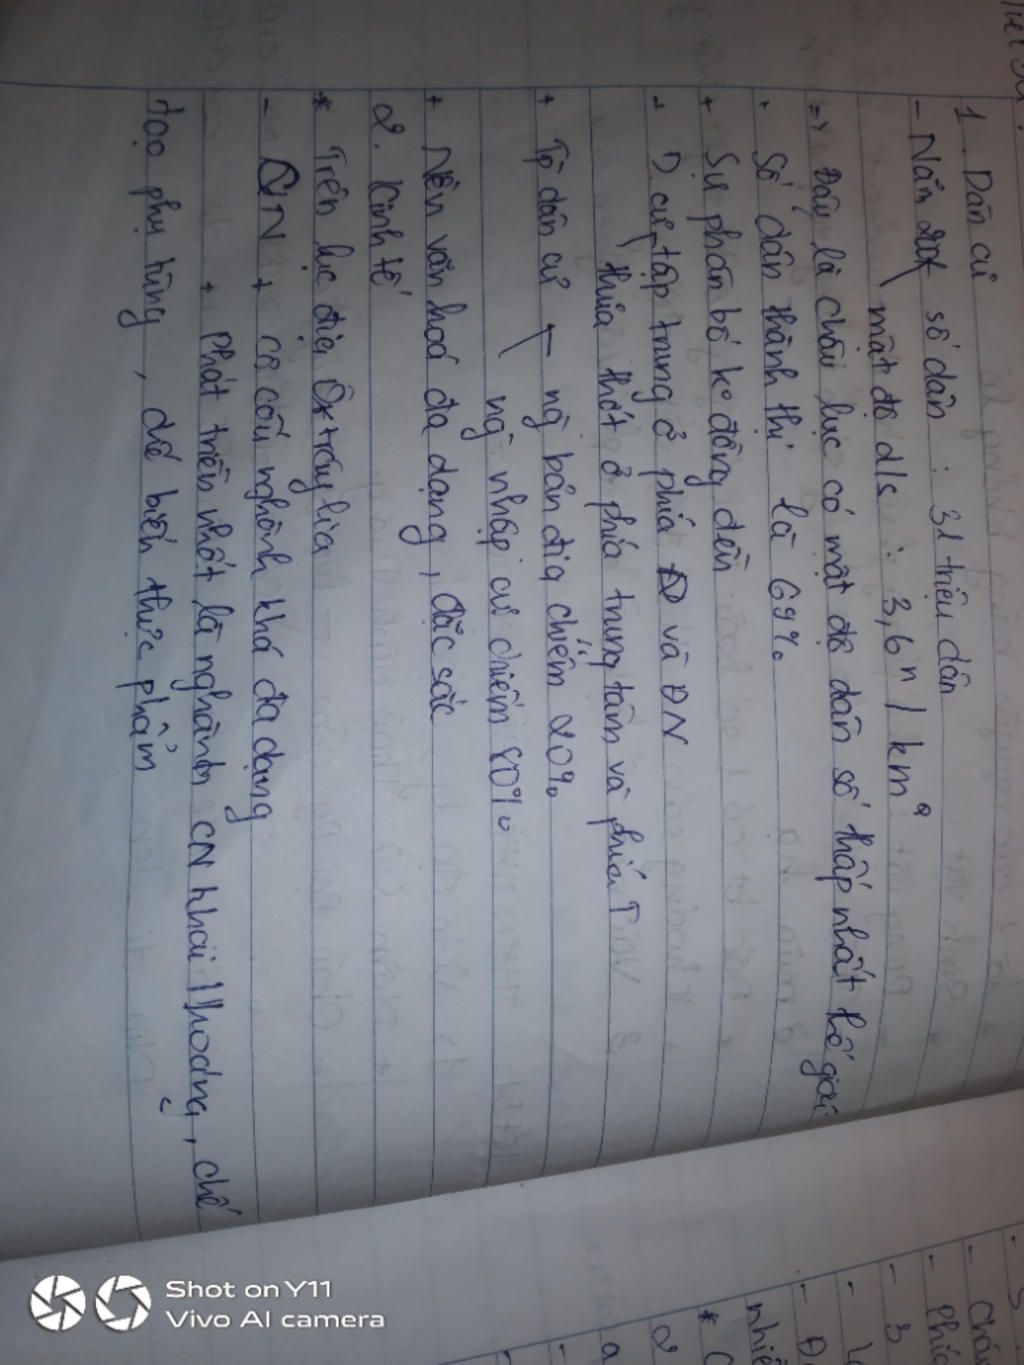 1. Dân cư
- Năm 2001 số dân : 31 triệu dân
mật độ d/s : 3,6 n / km²
=> Đây là châu lục có mật độ dân số thấp nhất thế giới
+ Số dân thành thị là 69%
+ Sự phân bố ko đồng đều
+ D.cư tập trung ở phía Đ và ĐN
thưa thớt ở phía trung tâm và phía T
+ Tp dân cư ng bản địa chiếm 20%
ng nhập cư chiếm 80%
+ Nền văn hoá đa dạng, đặc sắc
2. Kinh tế
* Trên lục địa Ôxtrâylia
- CN + cơ cấu nghành khá đa dạng
+ Phát triển nhất là nghành CN khai khoáng, chế
tạo phụ tùng, chế biến thực phẩm
Shot on Y11
Vivo AI camera